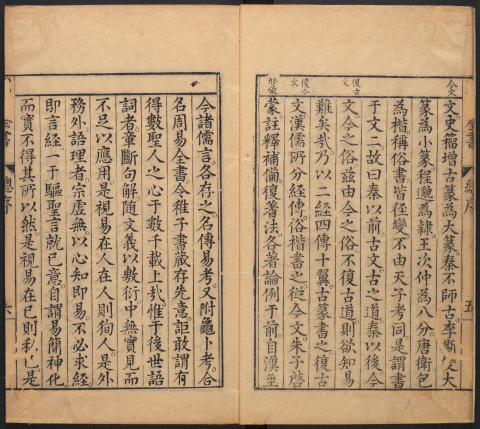 今文
文史籀增古篆為大篆秦不師古李斯變大
篆為小篆程邈為隸王次仲為八分唐衛包
為楷稱俗書皆徑變不由天子考同是謂書
于文二故曰秦以前古文古之道秦以後今
復古文
文今之俗茲由今之俗不復古道則欲知易
難矣哉乃以二經四傳十翼古篆書之復古
復今文
文漢儒所分經傳俗楷書之從今文朱子啓
蒙註釋補備復著法各著論例于前自漢至
今諸儒言各存之名傳易考又附龜卜考合
名周易全書令稚子書藏存先意詎敢謂有
得數聖人之心于數千載上哉惟于後世語
詞者章斷句解隨文義以敷衍中無實見而
不足以應用是視易在人在人則狥人是外
務外語理者宗虛無以心知即易不必求經
即言經一于驅聖言就已意自謂易簡神化
而實不得其所以然是視易在已則私已是
全書 總序 六